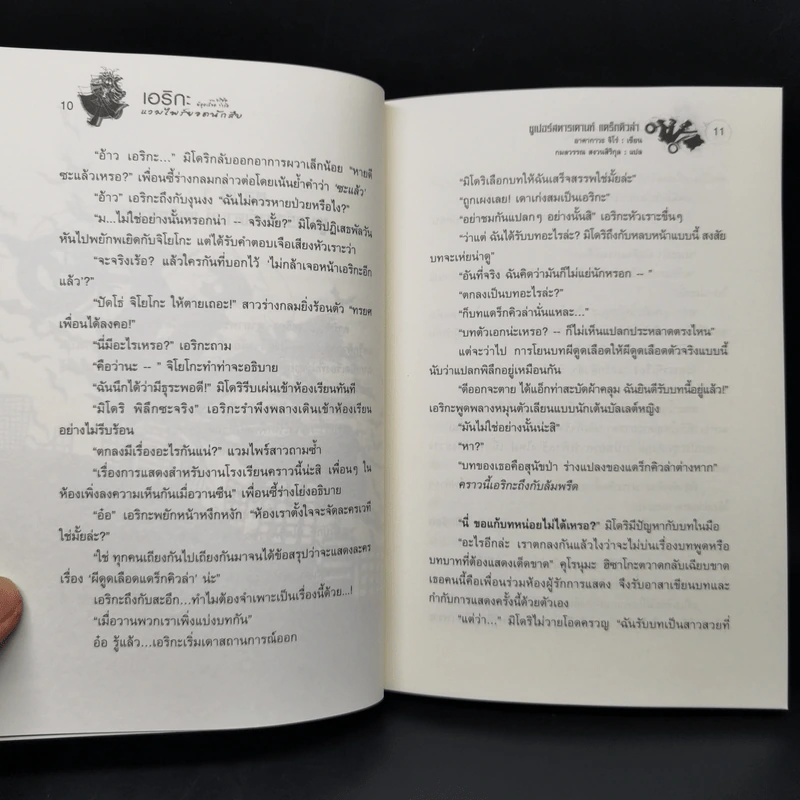 10
เอริกะ
แวมไพร์ยอดนักสืบ
“อ้าว เอริกะ...” มิโดริกลับออกอาการผวาเล็กน้อย “หายดี
ซะแล้วเหรอ?” เพื่อนซี้ร่างกลมกล่าวต่อโดยเน้นย้ำคำว่า ‘ซะแล้ว’
“อ้าว” เอริกะถึงกับงุนงง “ฉันไม่ควรหายป่วยหรือไง?”
“ม...ไม่ใช่อย่างนั้นหรอกน่า -- จริงมั้ย?” มิโดริปฏิเสธพัลวัน
หันไปพยักพเยิดกับจิโยโกะ แต่ได้รับคำตอบเจือเสียงหัวเราะว่า
“จะจริงเร้อ? แล้วใครกันที่บอกไว้ ‘ไม่กล้าเจอหน้าเอริกะอีก
แล้ว’?”
“ปัดโธ่ จิโยโกะ ให้ตายเถอะ!” สาวร่างกลมยิ่งร้อนตัว “ทรยศ
เพื่อนได้ลงคอ!”
“นี่มีอะไรเหรอ?” เอริกะถาม
“คือว่านะ -- ” จิโยโกะทำท่าจะอธิบาย
“ฉันนึกได้ว่ามีธุระพอดี!” มิโดริรีบเผ่นเข้าห้องเรียนทันที
“มิโดริ พิลึกซะจริง” เอริกะรำพึงพลางเดินเข้าห้องเรียน
อย่างไม่รีบร้อน
“ตกลงมีเรื่องอะไรกันแน่?” แวมไพร์สาวถามซ้ำ
“เรื่องการแสดงสำหรับงานโรงเรียนคราวนี้น่ะสิ เพื่อนๆ ใน
ห้องเพิ่งลงความเห็นกันเมื่อวานซืน” เพื่อนซี้ร่างโย่งอธิบาย
“อ๋อ” เอริกะพยักหน้าหงึกหงัก “ห้องเราตั้งใจจะจัดละครเวที
ใช่มั้ยล่ะ?”
“ใช่ ทุกคนเถียงกันไปเถียงกันมาจนได้ข้อสรุปว่าจะแสดงละคร
เรื่อง ‘ผีดูดเลือดแดร็กคิวล่า’ น่ะ”
เอริกะถึงกับสะอึก...ทำไมต้องจำเพาะเป็นเรื่องนี้ด้วย...!
“เมื่อวานพวกเราเพิ่งแบ่งบทกัน”
อ๋อ รู้แล้ว...เอริกะเริ่มเดาสถานการณ์ออก
ซูเปอร์สตาร์เคานท์ แดร็กคิวล่า
อาคากาวะ จิโร่ : เขียน
กมลวรรณ สงวนสิริกุล : แปล
11
“มิโดริเลือกบทให้ฉันเสร็จสรรพใช่มั้ยล่ะ”
“ถูกเผงเลย! เดาเก่งสมเป็นเอริกะ”
“อย่าชมกันแปลกๆ อย่างนั้นสิ” เอริกะหัวเราะขื่นๆ
“ว่าแต่ ฉันได้รับบทอะไรล่ะ? มิโดริถึงกับหลบหน้าแบบนี้ สงสัย
บทจะเห่ยน่าดู”
“อันที่จริง ฉันคิดว่ามันก็ไม่แย่นักหรอก -- ”
“ตกลงเป็นบทอะไรล่ะ?”
“ก็บทแดร็กคิวล่านั่นแหละ...”
“บทตัวเอกน่ะเหรอ? -- ก็ไม่เห็นแปลกประหลาดตรงไหน”
แต่จะว่าไป การโยนบทผีดูดเลือดให้ผีดูดเลือดตัวจริงแบบนี้
นับว่าแปลกพิลึกอยู่เหมือนกัน
“ดีออกจะตาย ได้แอ็กท่าสะบัดผ้าคลุม ฉันยินดีรับบทนี้อยู่แล้ว!”
เอริกะพูดพลางหมุนตัวเลียนแบบนักเต้นบัลเลต์หญิง
“มันไม่ใช่อย่างนั้นน่ะสิ”
“หา?”
“บทของเธอคือสุนัขป่า ร่างแปลงของแดร็กคิวล่าต่างหาก”
คราวนี้เอริกะถึงกับล้มพรืด
“นี่ ขอแก้บทหน่อยไม่ได้เหรอ?” มิโดริมีปัญหากับบทในมือ
“อะไรอีกล่ะ เราตกลงกันแล้วไงว่าจะไม่บ่นเรื่องบทพูดหรือ
บทบาทที่ต้องแสดงเด็ดขาด” คุโรนุมะ ฮิซาโกะตวาดกลับเฉียบขาด
เธอคนนี้คือเพื่อนร่วมห้องผู้รักการแสดง จึงรับอาสาเขียนบทและ
กำกับการแสดงครั้งนี้ด้วยตัวเอง
“แต่ว่า...” มิโดริไม่วายโอดครวญ “ฉันรับบทเป็นสาวสวยที่